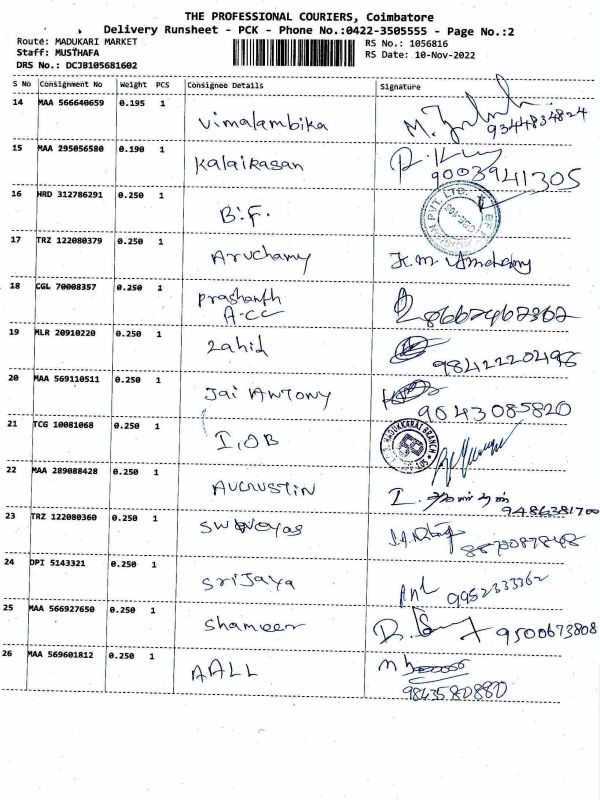 THE PROFESSIONAL COURIERS, Coimbatore
Delivery Runsheet - PCK - Phone No.:0422-3505555 - Page No.:2
Route: MADUKARI MARKET RS No.: 1056816
Staff: MUSTHAFA RS Date: 10-Nov-2022
DRS No.: DCJB105681602
S No Consignment No Weight PCS Consignee Details Signature
14 MAA 566640659 0.195 1 Vimalambika 9344834824
15 MAA 295056580 0.190 1 Kalaikasan 9003941305
16 HRD 312786291 0.250 1 B.F. PVT. LTD.
17 TRZ 122080379 0.250 1 Aruchamy K.m.
18 CGL 70008357 0.250 1 Prashanth
A-CC 8667467362
19 MLR 20910220 0.250 1 Zahid 98422 20498
20 MAA 569110511 0.250 1 Jai Antony 9043085820
21 TCG 10081068 0.250 1 I.OB MADUKKARAI BRANCH
22 MAA 289088428 0.250 1 AUGUSTIN I. 9486381700
23 TRZ 122080360 0.250 1
24 DPI 5143321 0.250 1 Srijaya 9952333362
25 MAA 566927650 0.250 1 Shameer 9500673808
26 MAA 569601812 0.250 1 AALL
9843580880